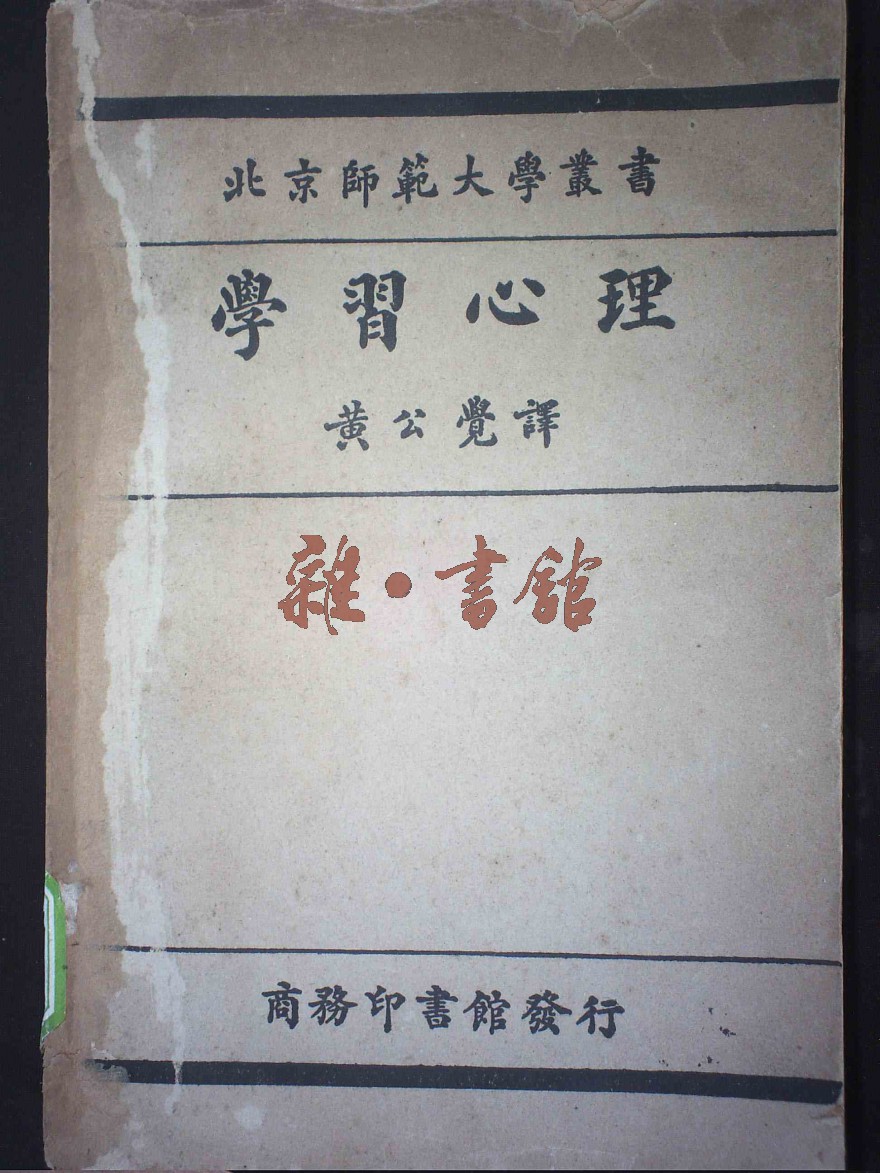 北京師範大學叢書
學習心理
黃公覺譯
雜·書館
商務印書館發行